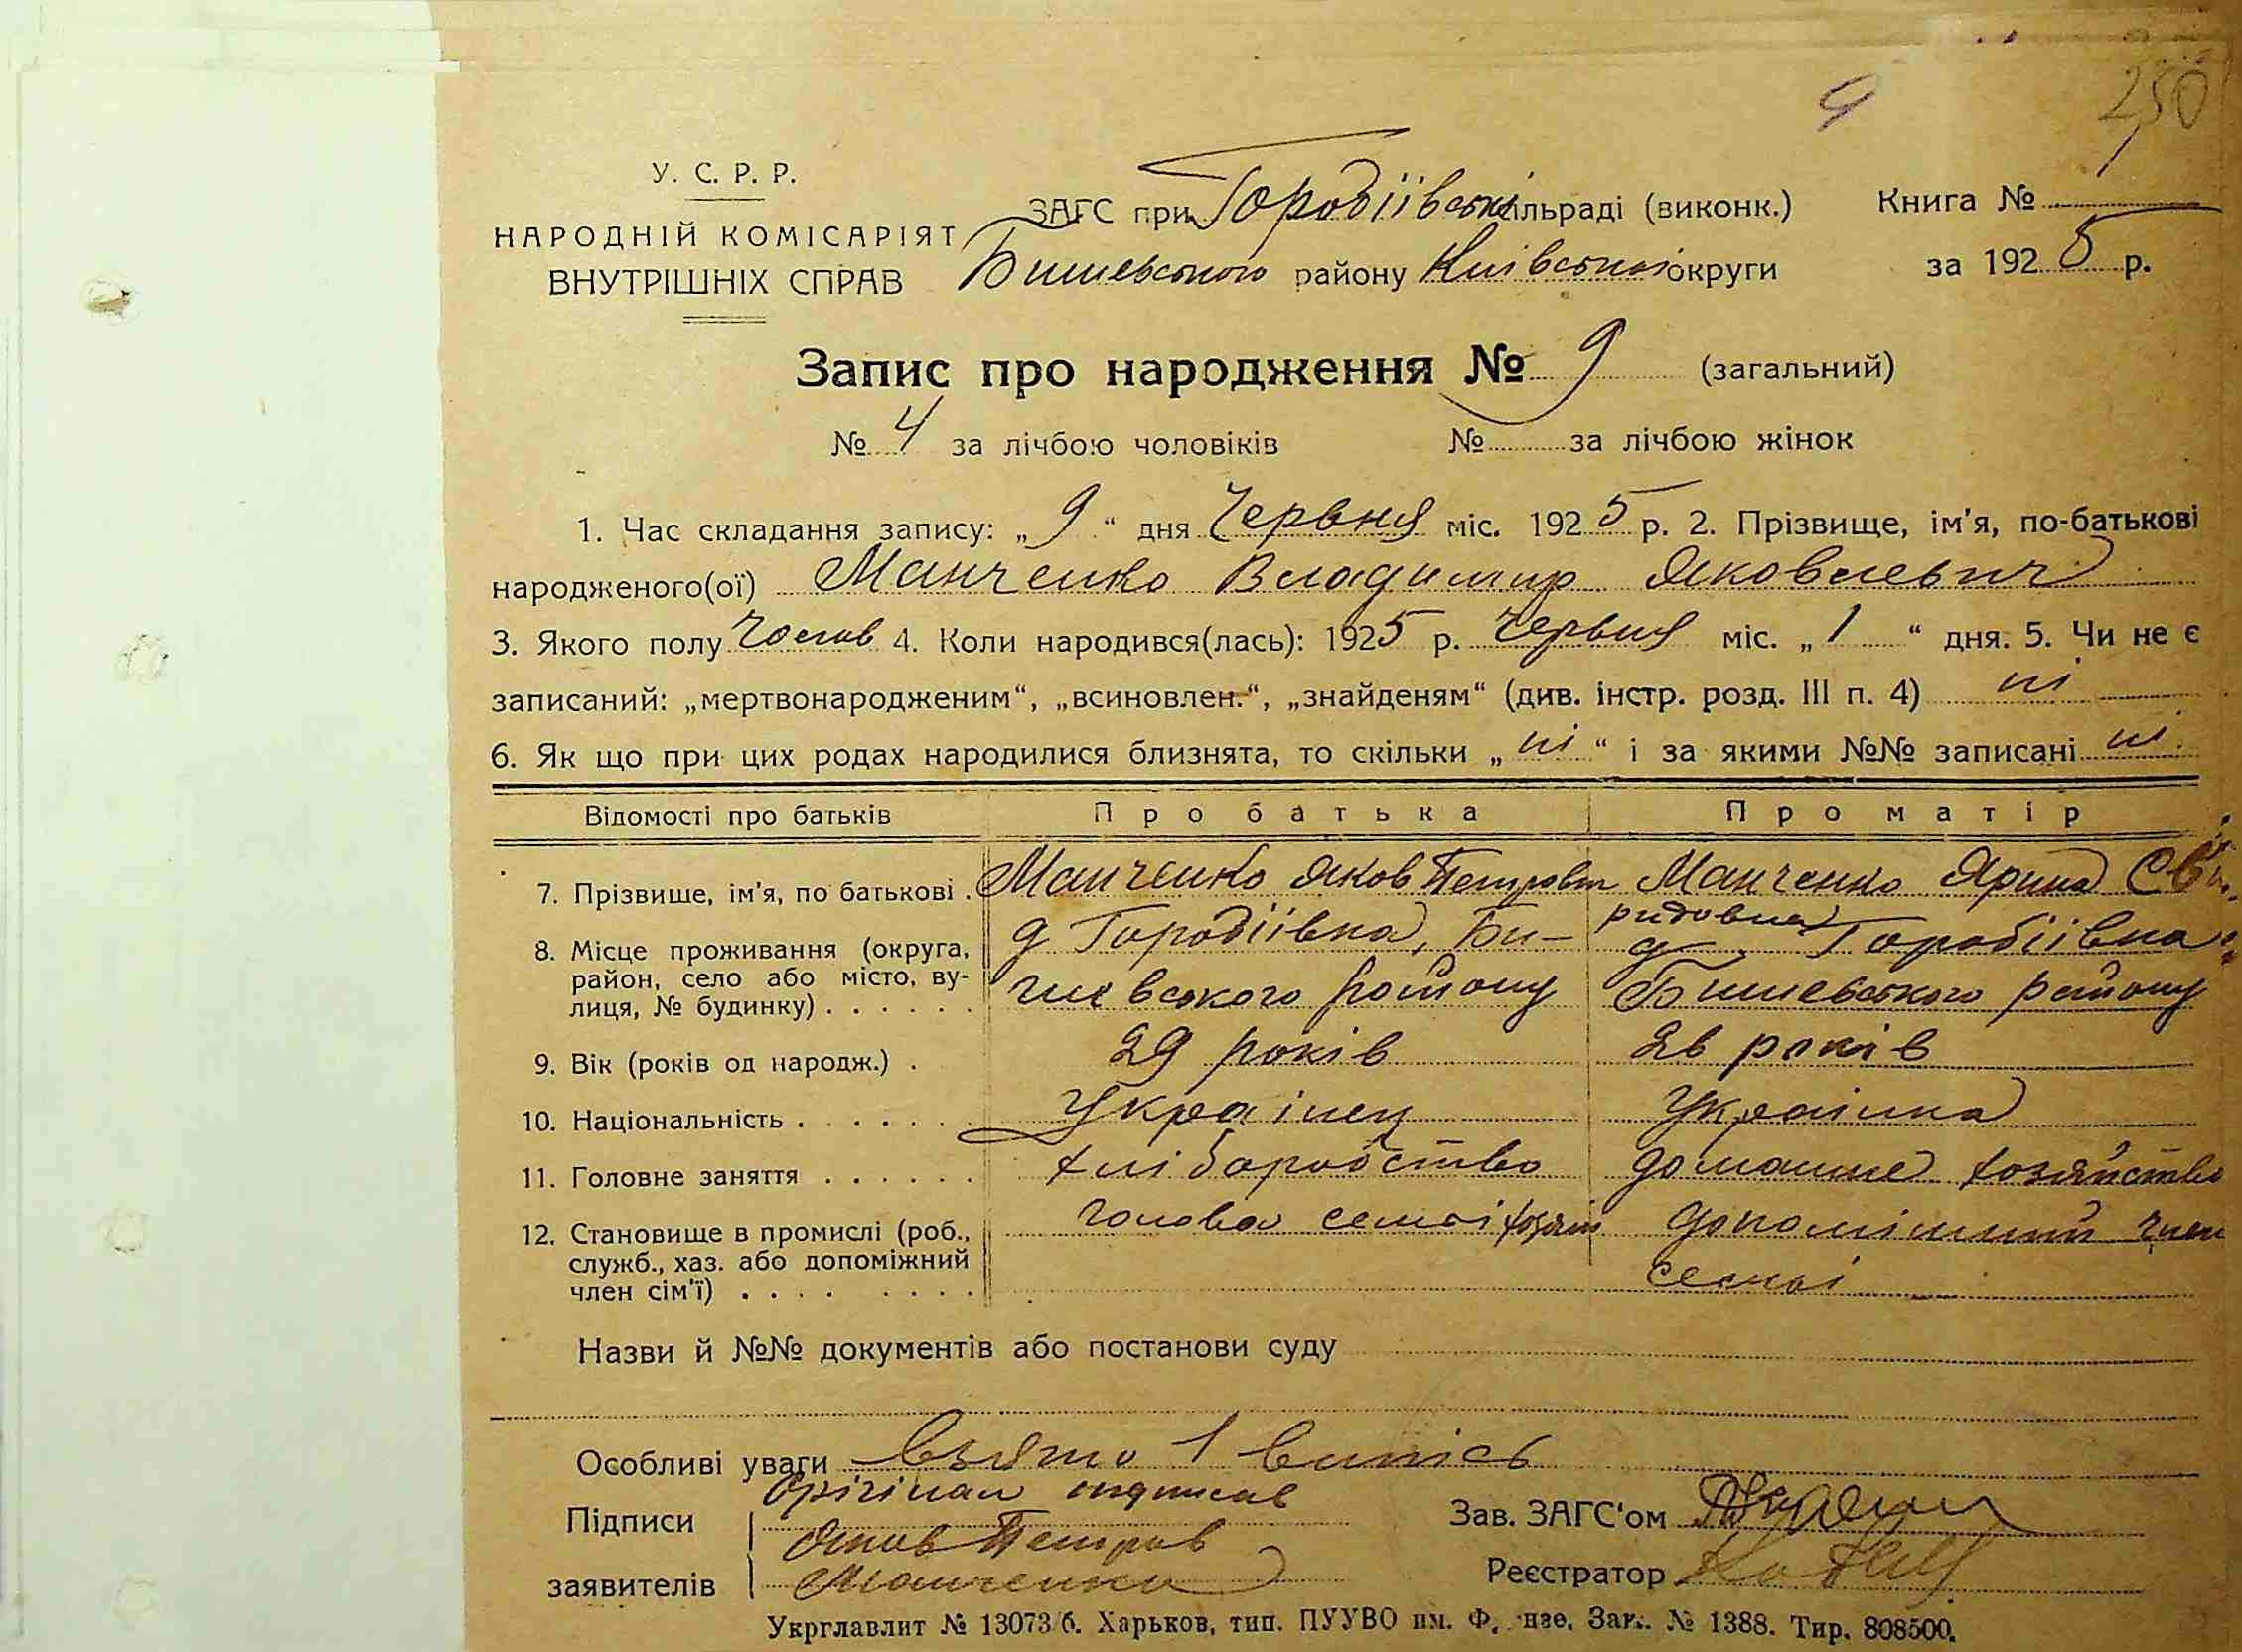 9
250
У. С. Р. Р.
НАРОДНІЙ КОМІСАРІЯТ
ВНУТРІШНІХ СПРАВ
ЗАГС при Городіївські сільраді (виконк.)
Бишевського району Київської округи
Книга № 1
за 1925 р.
Запис про народження № 9 (загальний)
№ 4 за лічбою чоловіків № за лічбою жінок
1. Час складання запису: „9“ дня Червня міс. 1925 р. 2. Прізвище, ім'я, по-батькові
народженого(ої) Манченко Владимир Яковлевич
3. Якого полу Чолов 4. Коли народився(лась): 1925 р. Червня міс. „1“ дня. 5. Чи не є
записаний: „мертвонародженим“, „всиновлен.“, „знайденям“ (див. інстр. розд. III п. 4) ні
6. Як що при цих родах народилися близнята, то скільки „ні“ і за якими №№ записані ні
Відомості про батьків Про батька Про матір
7. Прізвище, ім'я, по батькові . Манченко Яков Петрович Манченко Ярина Сви-
ридовна
8. Місце проживання (округа, район, село або місто, вулиця, № будинку) . . . . . . д Городіївка, Би-
шевського району
д Городіївка
Бишевського району
9. Вік (років од народж.) . 29 років 26 років
10. Національність . . . . . . Українец Українка
11. Головне заняття . . . . . . хліборобство домашнє хозяйство
12. Становище в промислі (роб., служб., хаз. або допоміжний член сім'ї) . . . . . . . . голова семьї хозяїн допомішний член
семьї
Назви й №№ документів або постанови суду
Особливі уваги Взято 1 випісь
Орігінал подписав
Підписи Яков Петров
заявителів Манченко
Зав. ЗАГС‘ом
Реєстратор
Укрглавлит № 13073/б. Харьков, тип. ПУУВО им. Ф. нзе. Зак. № 1388. Тир. 808500.